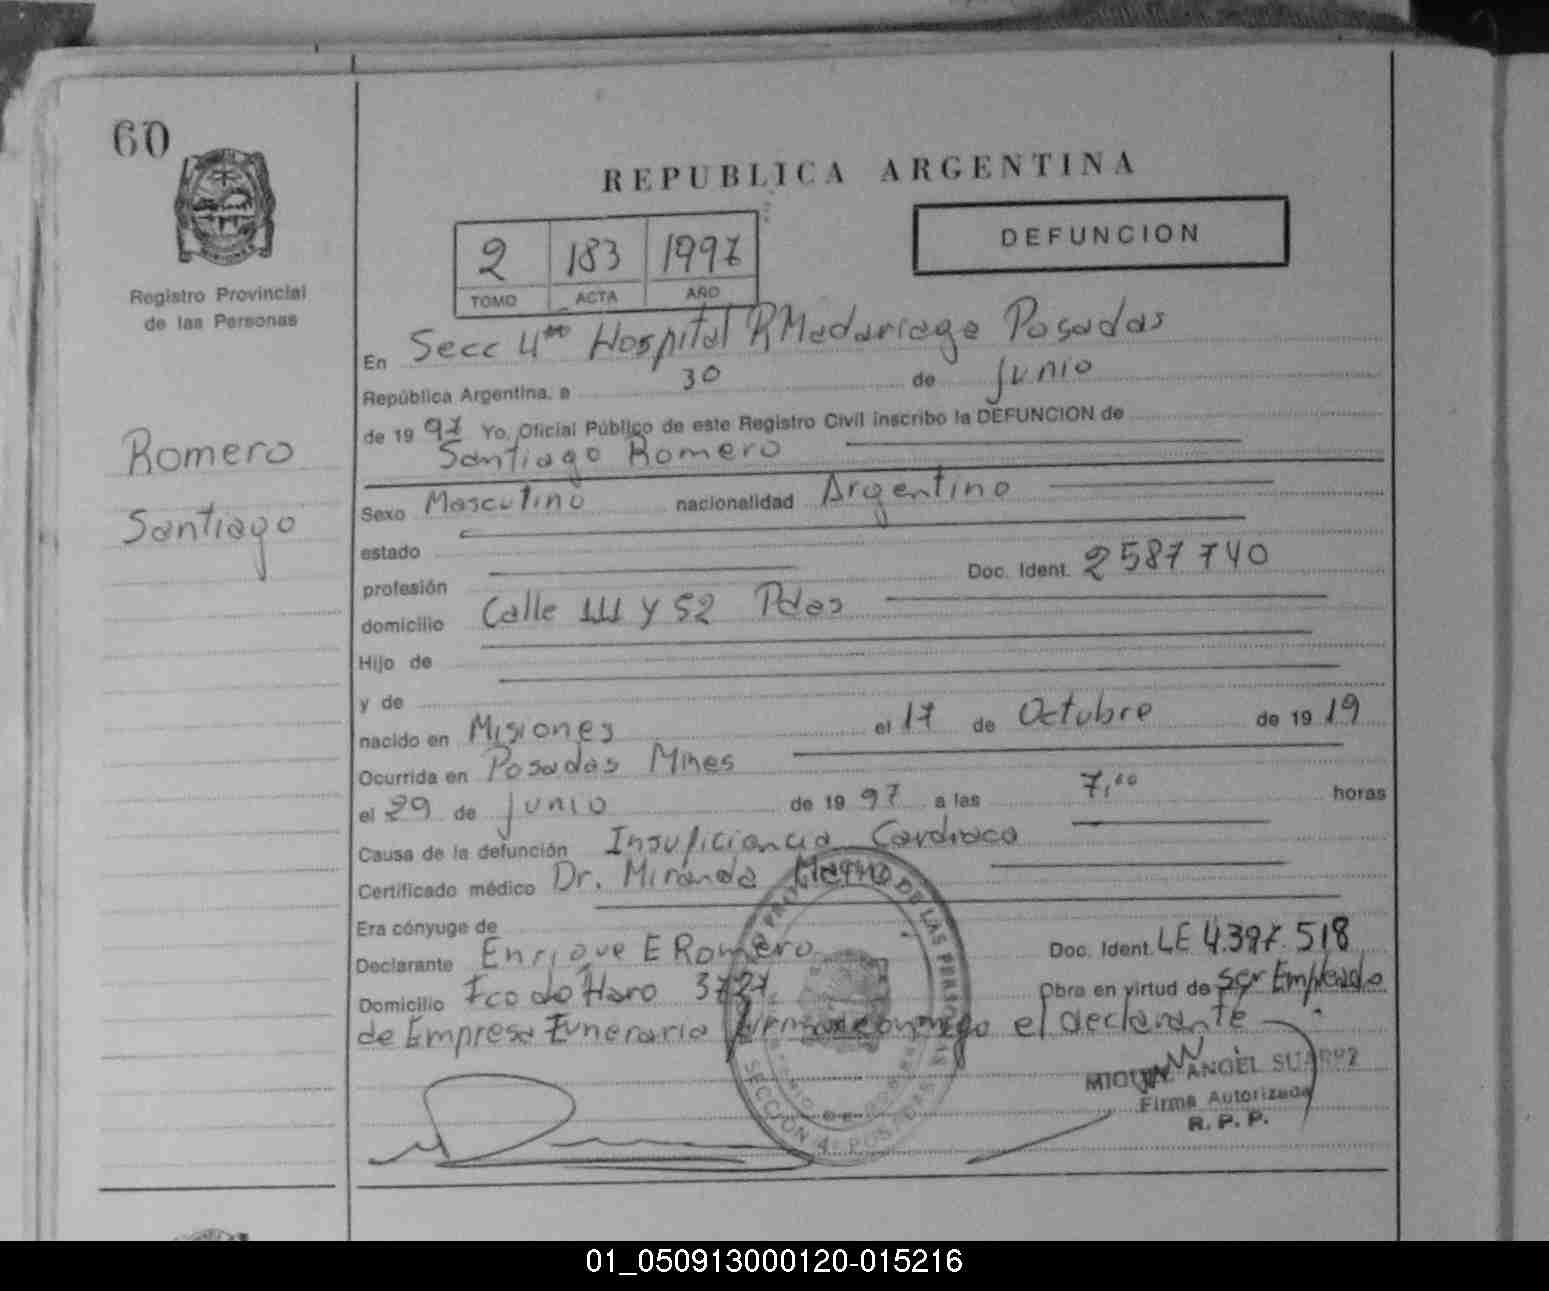 60
REPUBLICA ARGENTINA
DEFUNCION
2 183 1997
TOMO ACTA AÑO
Registro Provincial
de las Personas
Romero
Santiago
En Secc 4ta Hospital R Madariaga Posadas
República Argentina, a 30 de junio
de 19 97 Yo, Oficial Público de este Registro Civil inscribo la DEFUNCION de
Santiago Romero
Sexo Masculino nacionalidad Argentino
estado
profesión Doc. Ident. 2587740
domicilio Calle 111 y 52 Pdas
Hijo de
y de
nacido en Misiones el 17 de Octubre de 19 19
Ocurrida en Posadas Mnes
el 29 de junio de 19 97 a las 7,00 horas
Causa de la defunción Insuficiencia Cardiaca
Certificado médico Dr. Miranda
Era cónyuge de
Declarante Enrique E Romero Doc. Ident. LE 4.397.518
Domicilio Fco de Haro 3727 Obra en virtud de ser Empleado
de Empresa Funeraria firma conmigo el declarante
MIGUEL ANGEL SUAREZ
Firma Autorizada
R. P. P.
SECCION 4 POSADAS
01_050913000120-015216